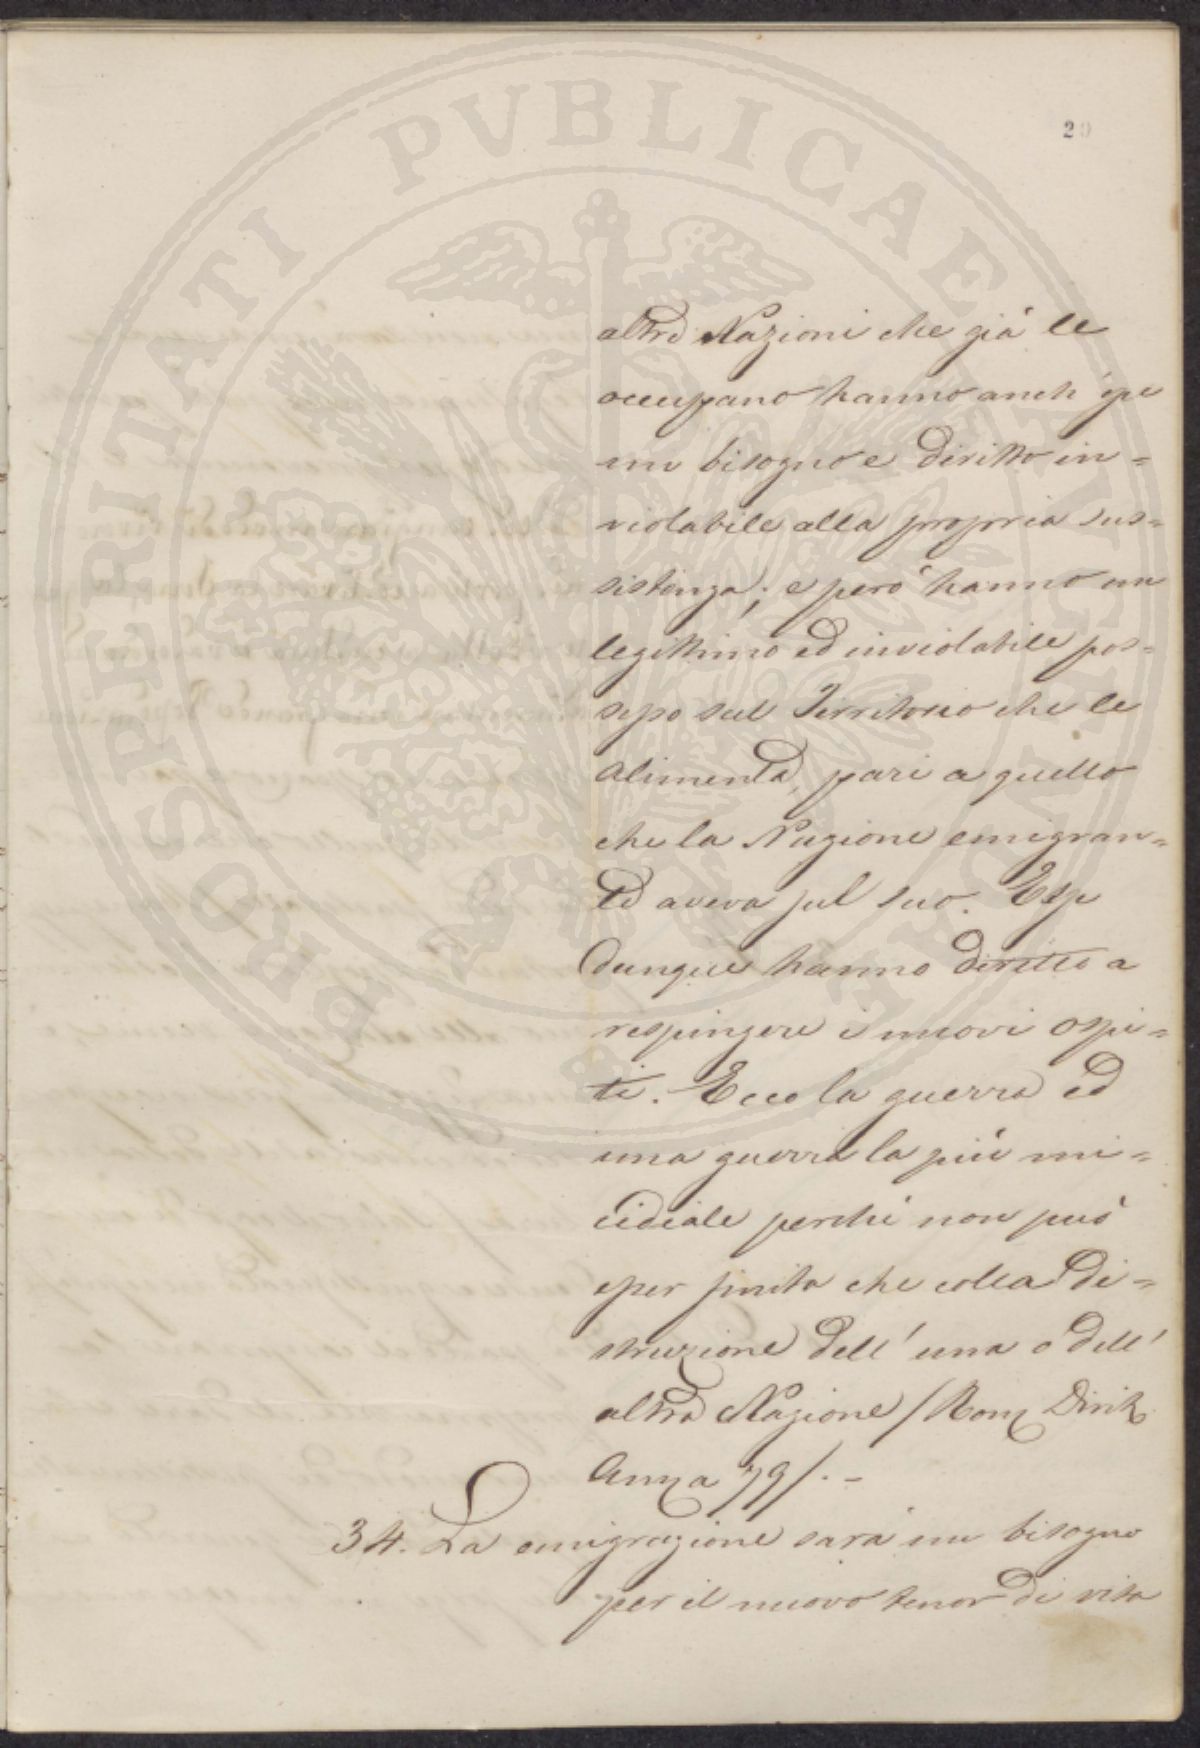 PROSPERITATI PVBLICAE AVGENDAE
20
altre Nazioni che già le
occupano hanno anch'esse
un bisogno e diritto in=
violabile alla propria sus=
sistenza; e però hanno un
legittimo ed inviolabile pos=
sesso sul Territorio che le
alimenta, pari a quello
che la Nazione emigran=
te aveva sul suo. Esse
dunque hanno diritto a
respingere i nuovi ospi=
ti. Ecco la guerra ed
una guerra la più mi=
cidiale perchè non può
esser finita che colla di=
struzione dell'una o dell'
altra Nazione /Rom Dirit.
a 79/. -
34. La emigrazione sarà un bisogno
per il nuovo tenor di vita